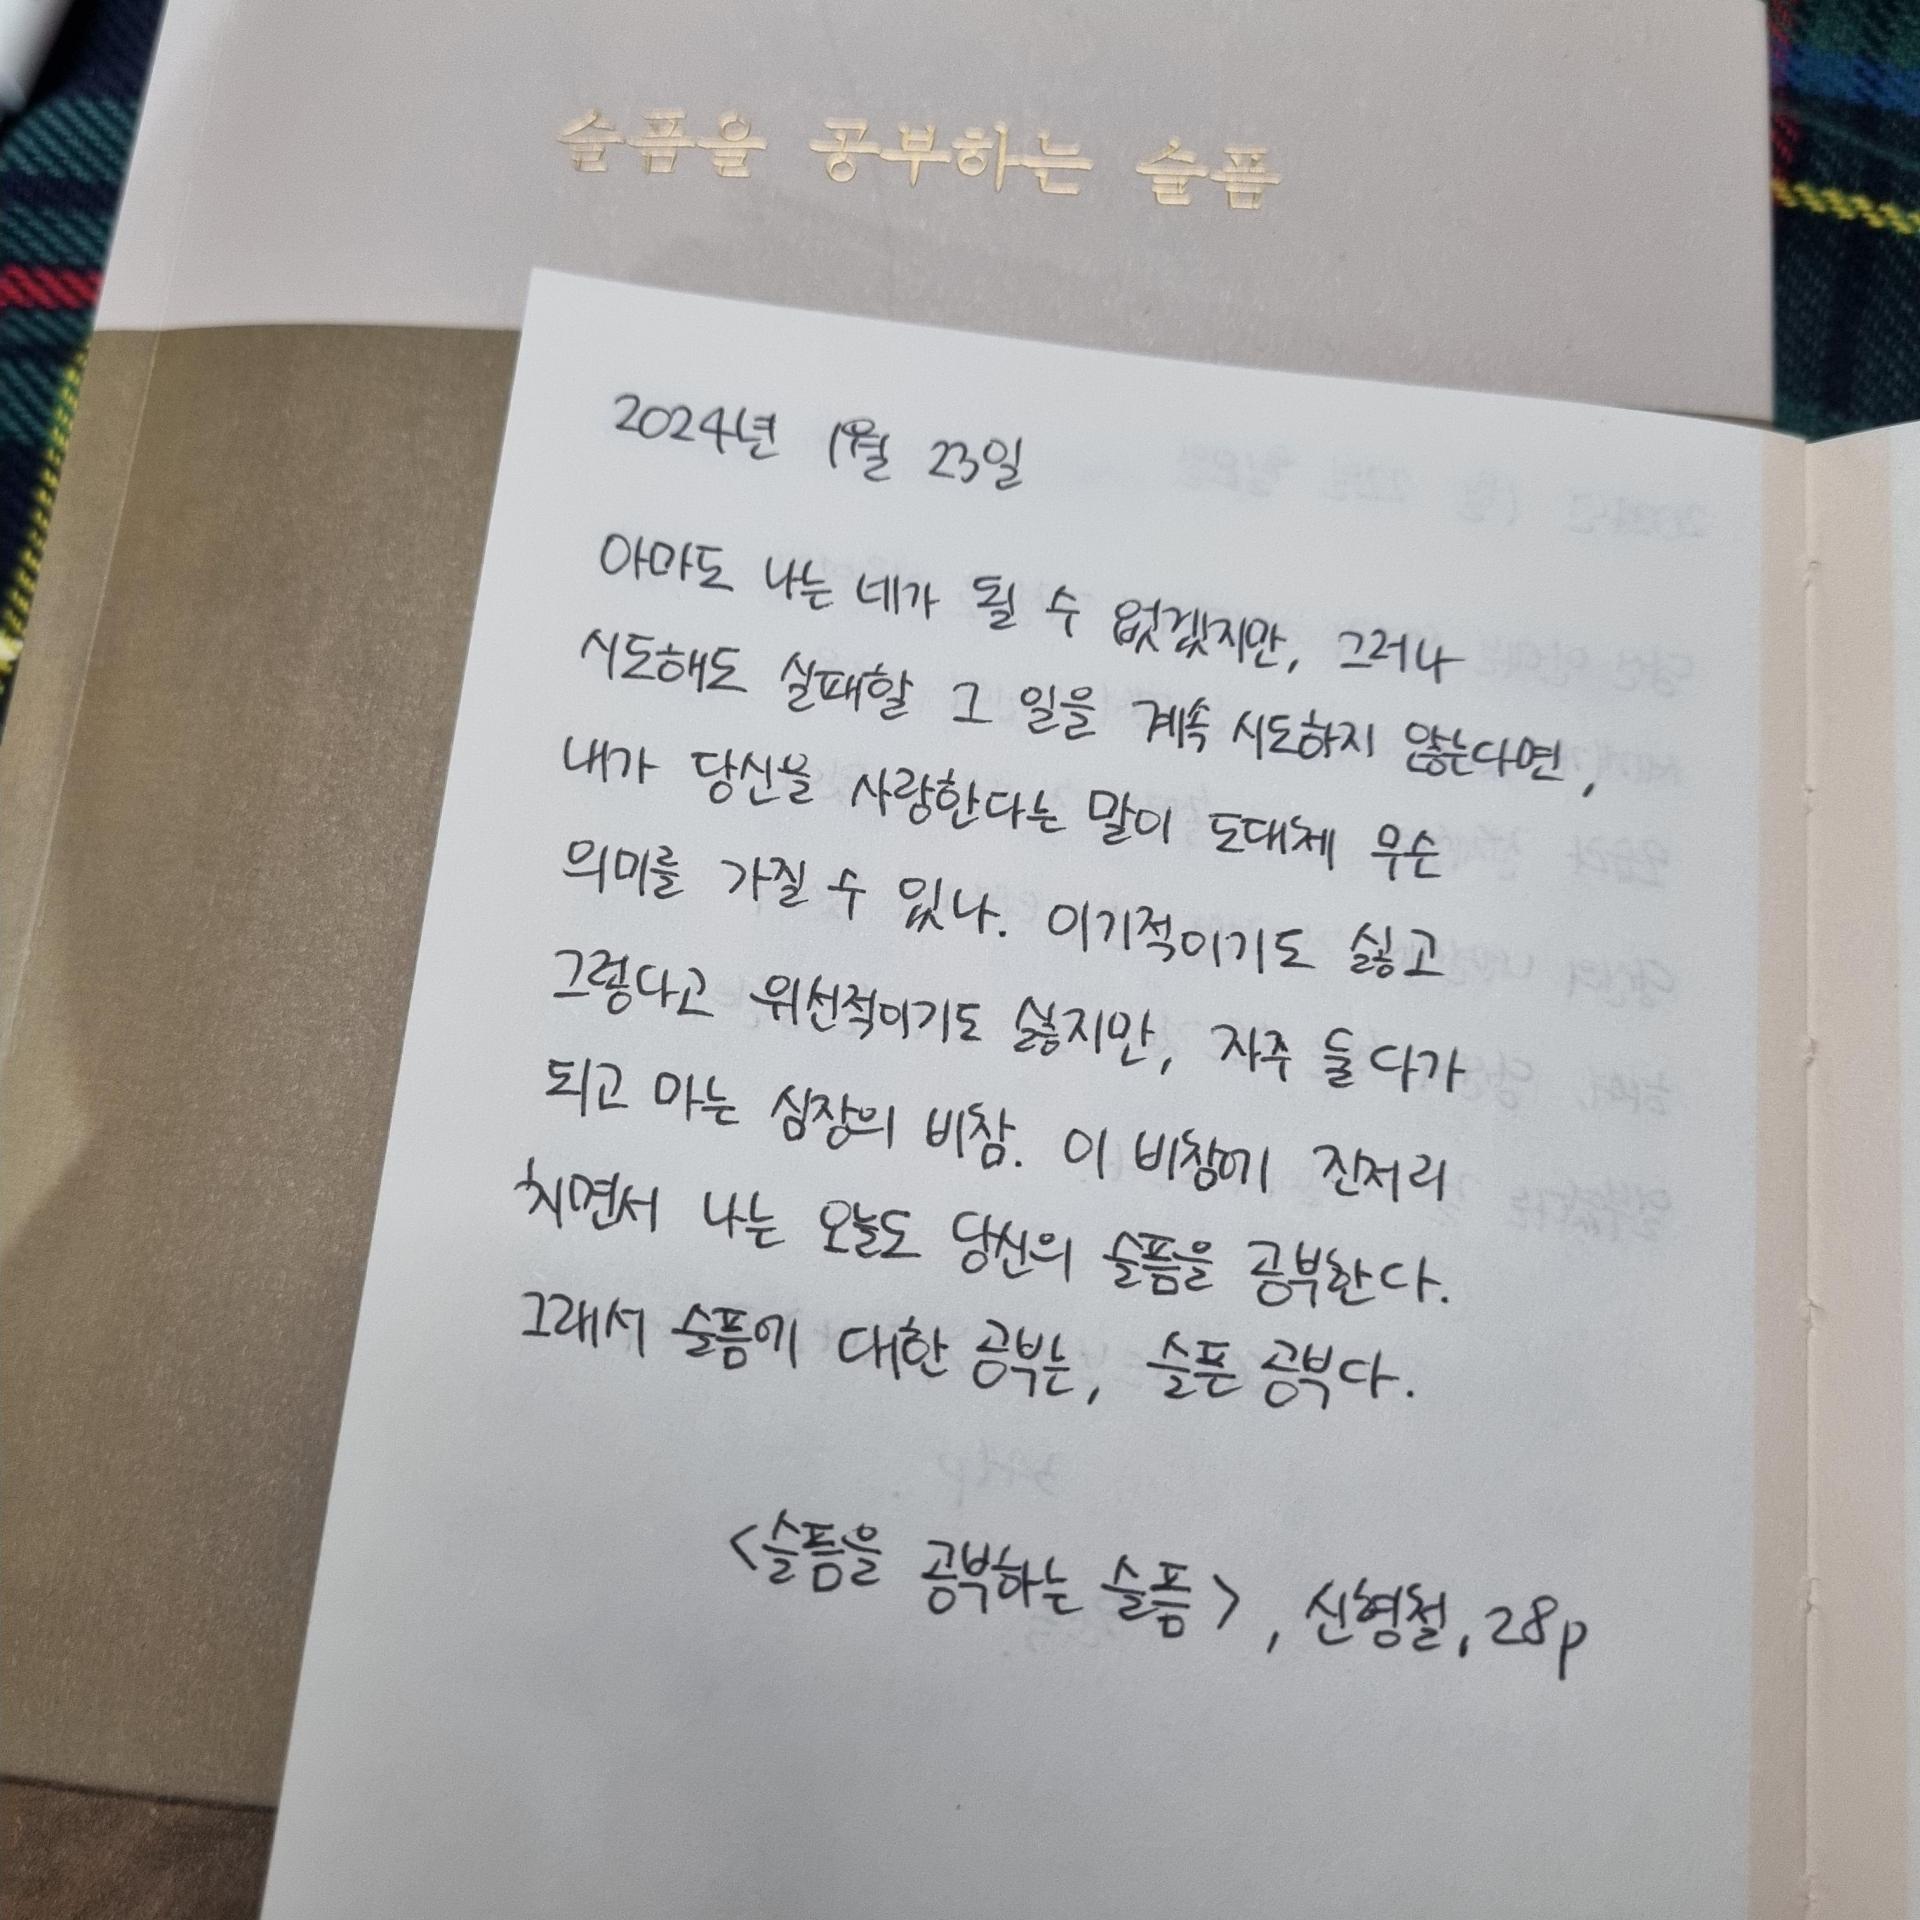 슬픔을 공부하는 슬픔
2024년 1월 23일
아마도 나는 네가 될 수 없겠지만, 그러나
시도해도 실패할 그 일을 계속 시도하지 않는다면,
내가 당신을 사랑한다는 말이 도대체 무슨
의미를 가질 수 있나. 이기적이기도 싫고
그렇다고 위선적이기도 싫지만, 자주 둘 다가
되고 마는 심장의 비참. 이 비참에 진저리
치면서 나는 오늘도 당신의 슬픔을 공부한다.
그래서 슬픔에 대한 공부는, 슬픈 공부다.
<슬픔을 공부하는 슬픔>, 신형철, 28p